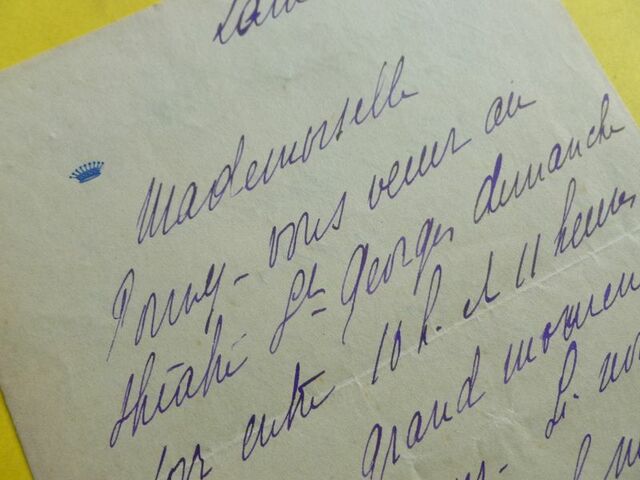 Mademoiselle
Pouvez-vous venir au
théâtre St Georges dimanche
soir entre 10 h. et 11 heures
grand
Si